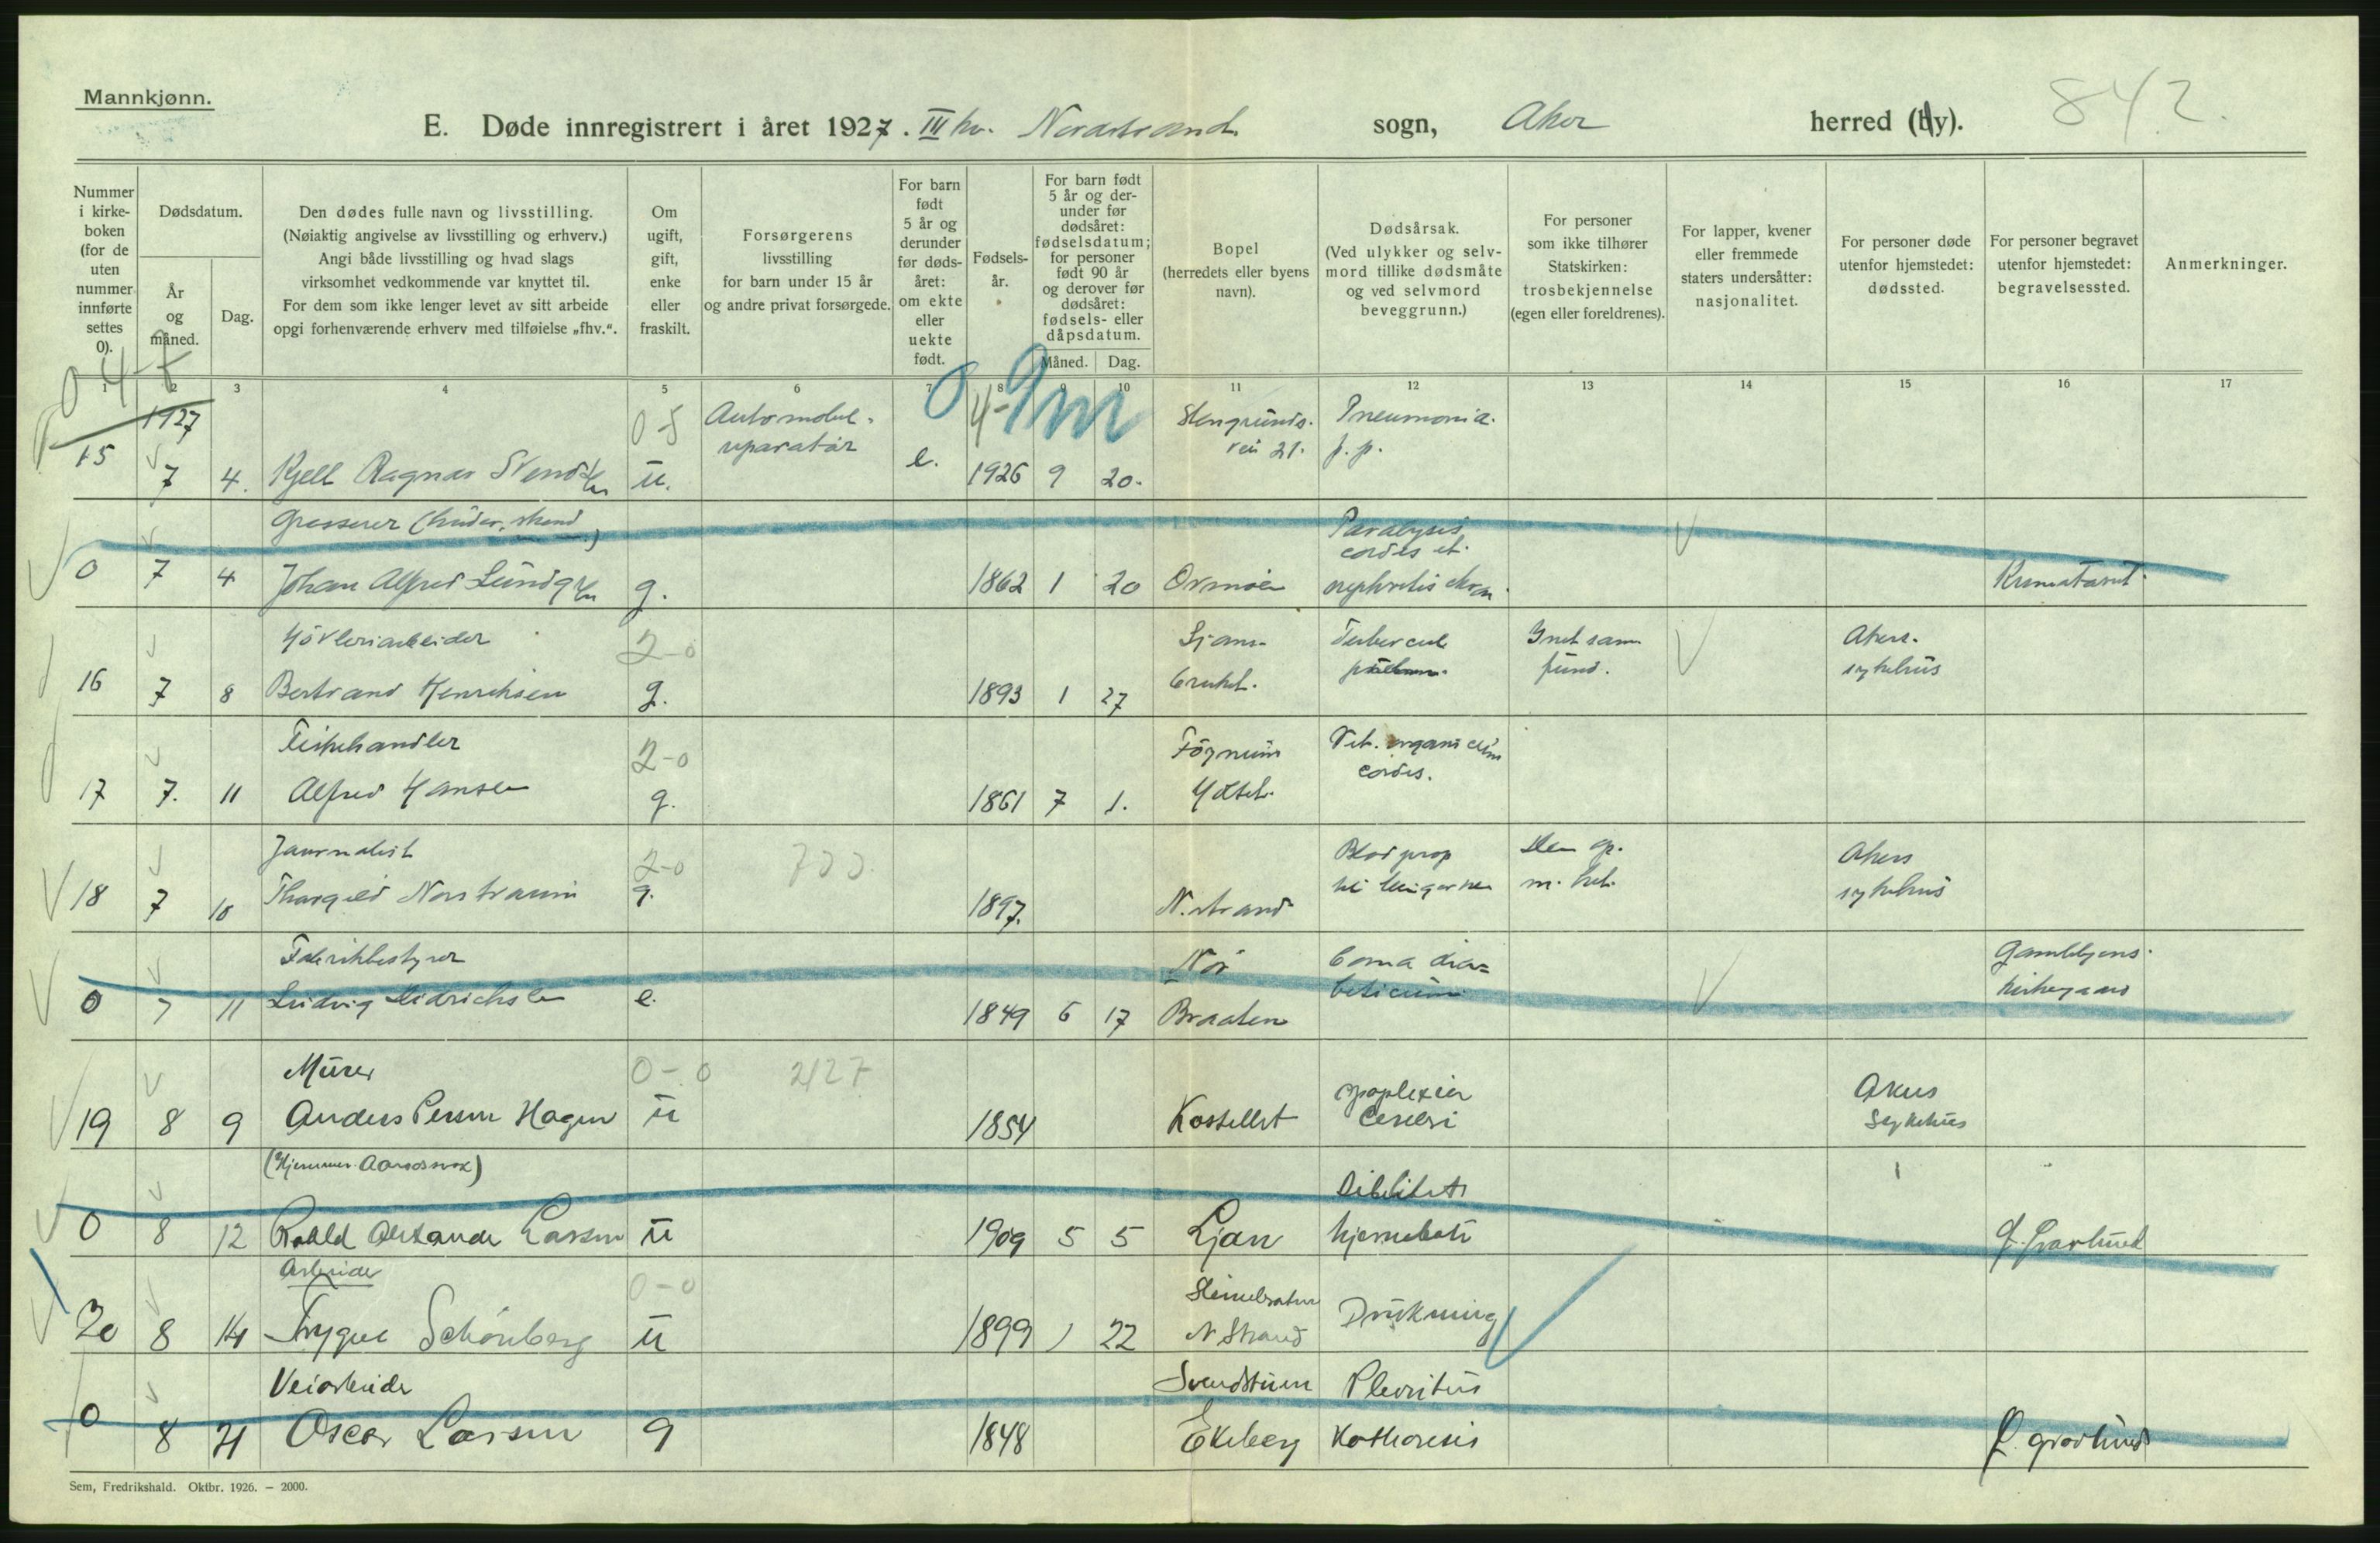 Mannkjønn.
842.
E. Døde innregistrert i året 1927. III kv. Nordstrand sogn, Aker herred (by).
Nummer i kirke-boken (for de uten nummer innførte settes 0).
Dødsdatum.
År og måned.
Dag.
Den dødes fulle navn og livsstilling.
(Nøiaktig angivelse av livsstilling og erhverv.)
Angi både livsstilling og hvad slags
virksomhet vedkommende var knyttet til.
For dem som ikke lenger levet av sitt arbeide
opgi forhenværende erhverv med tilføielse „fhv.“.
Om ugift, gift, enke eller fraskilt.
Forsørgerens
livsstilling
for barn under 15 år
og andre privat forsørgede.
For barn født 5 år og derunder før døds-året: om ekte eller uekte født.
Fødsels-år.
For barn født 5 år og der-under før dødsåret: fødselsdatum; for personer født 90 år og derover før dødsåret: fødsels- eller dåpsdatum.
Måned.
Dag.
Bopel
(herredets eller byens
navn).
Dødsårsak.
(Ved ulykker og selv-
mord tillike dødsmåte
og ved selvmord
beveggrunn.)
For personer
som ikke tilhører
Statskirken:
trosbekjennelse
(egen eller foreldrenes).
For lapper, kvener
eller fremmede
staters undersåtter:
nasjonalitet.
For personer døde
utenfor hjemstedet:
dødssted.
For personer begravet
utenfor hjemstedet:
begravelsessted.
Anmerkninger.
1 2 3 4 5 6 7 8 9 10 11 12 13 14 15 16 17
0 4-7
0 4-9 m
1927 0-5 Automobil- Pneumonia
reparatør vei 21. p. p.
15 7 4. Kjell Ragnar Svendsen u. e. 1926 9 20.
Grosserer Paralysis
cordis et
0 7 4 Johan Alfred Lundgren g. 1862 1 20 Ormøen nephritis chron. Krematoriet.
Høvleriarbeider 2-0 Ljans- Tubercul Akers
16 7 8 Bertrand Henriksen g. 1893 1 27 bruket. pulm. sykehus
Fiskehandler 2-0 Vit. organicum
17 7. 11 Alfred Hansen g. 1861 7 1. cordis.
Journalist 2-0 Blodprop Akers
18 7 10 Thorgeid Nordstraum g. 1897. N.strand til lungerne sykehus
Fabrikkbestyrer Coma dia- Gamlebyens
0 7 11 Ludvig Didrichsen e. 1849 6 17 Braaten beticum kirkegaard
Murer 0-0 2127 apoplexia Akers
19 8 9 Anders Persen Hagen u 1854 Kastellet Cerebri Sykehus
Debilitet
0 8 12 Roald Alexander Larsen u 1909 5 5 Ljan Ø. Gravlund
Arbeider 0-0
20 8 14 Trygve Schönberg u 1899 1 22 N Strand Drukning
Veiarbeider Svendstuen Pleuritis
0 8 21 Oscar Larsen g 1848 Ekeberg Ø. gravlund
Sem, Fredrikshald. Oktbr. 1926. – 2000.